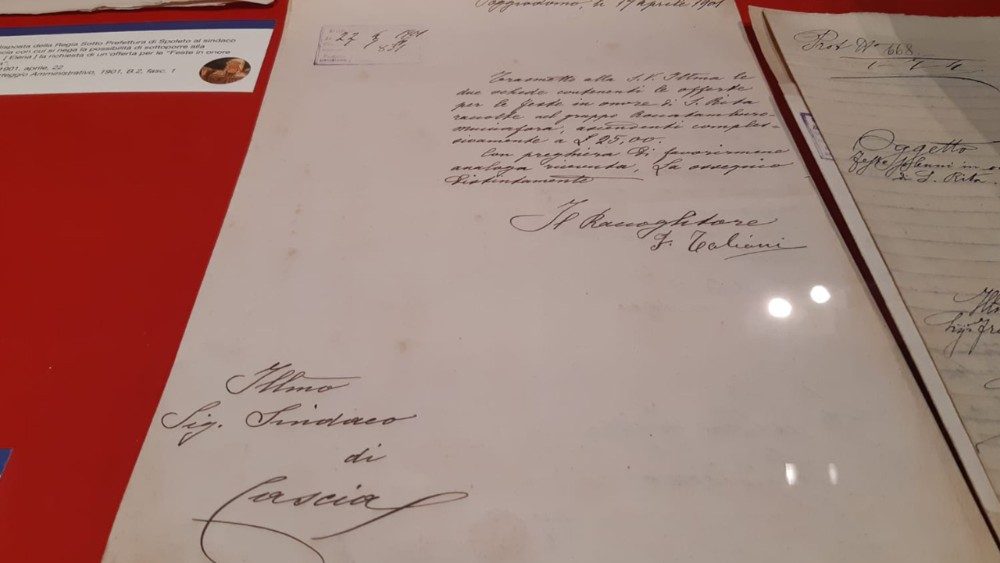 disposta della Regia Sotto Prefettura di Spoleto al sindaco
cia con cui si nega la possibilità di sottoporre alla
Elena la richiesta di un'offerta per le "Feste in onore
1901, aprile, 22
teggio Amministrativo, 1901, B.2, fasc. 1
Poggiodomo, li 17 aprile 1901
Trasmetto alla S.V. Illma le
due schede contenenti le offerte
per le feste in onore di S. Rita
raccolte nel gruppo Roccatamburo-
mucciafora, ascendenti comples-
sivamente a £ 25,00.
Con preghiera di favorirmene
analoga ricevuta, La ossequio
distintamente
Il Raccoglitore
F. Taliani
Illmo
Sig. Sindaco
di
Cascia
Prot. N° 668
Oggetto
Feste solenni in
di S. Rita